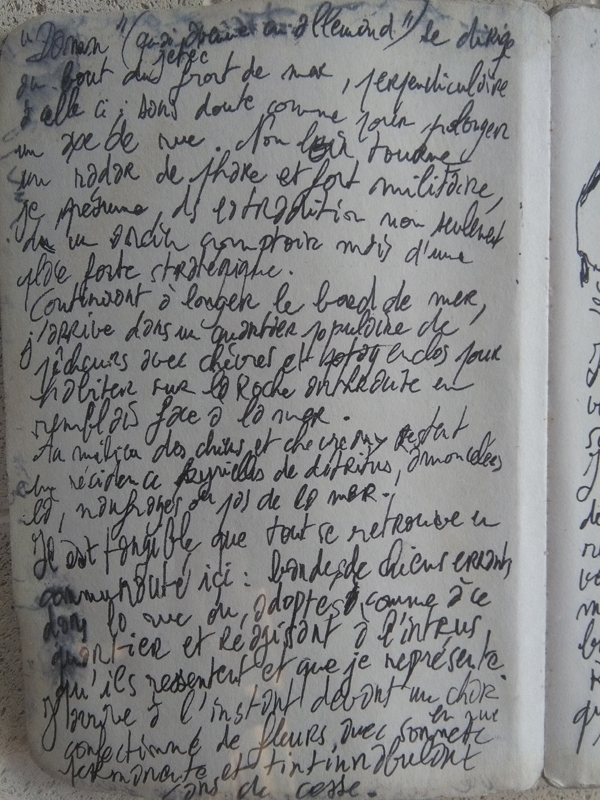 "Domen" (quai en allemand)" se dirige
jetée
au bout du front de mer, perpendiculaire
à elle ci ; sans doute comme pour prolonger
un axe de rue. Non loin, tourne
un radar de phare et fort militaire,
je présume, de la tradition non seulement
d'un ancien comptoir mais d'une
place forte stratégique.
Continuant à longer le bord de mer,
j'arrive dans un quartier populaire de
pêcheurs avec chèvres et enclos pour
habiter sur la Roche introduite en
remblais face à la mer.
Au milieu des chiens et chèvres y restant
en résidence kyrielles de détritus, amoncelées
là, naufragés ou pas de la mer.
Il est tangible que tout se retrouve en
communauté ici : bandes de chiens errants
dans la rue ou, adoptés, comme à ce
quartier et réagissant à l'intrus
qu'ils ressentent et que je représente.
J'arrive à l'instant devant un char
confectionné de fleurs, avec sonnette
permanente et tintinnabulant
sans de cesse.